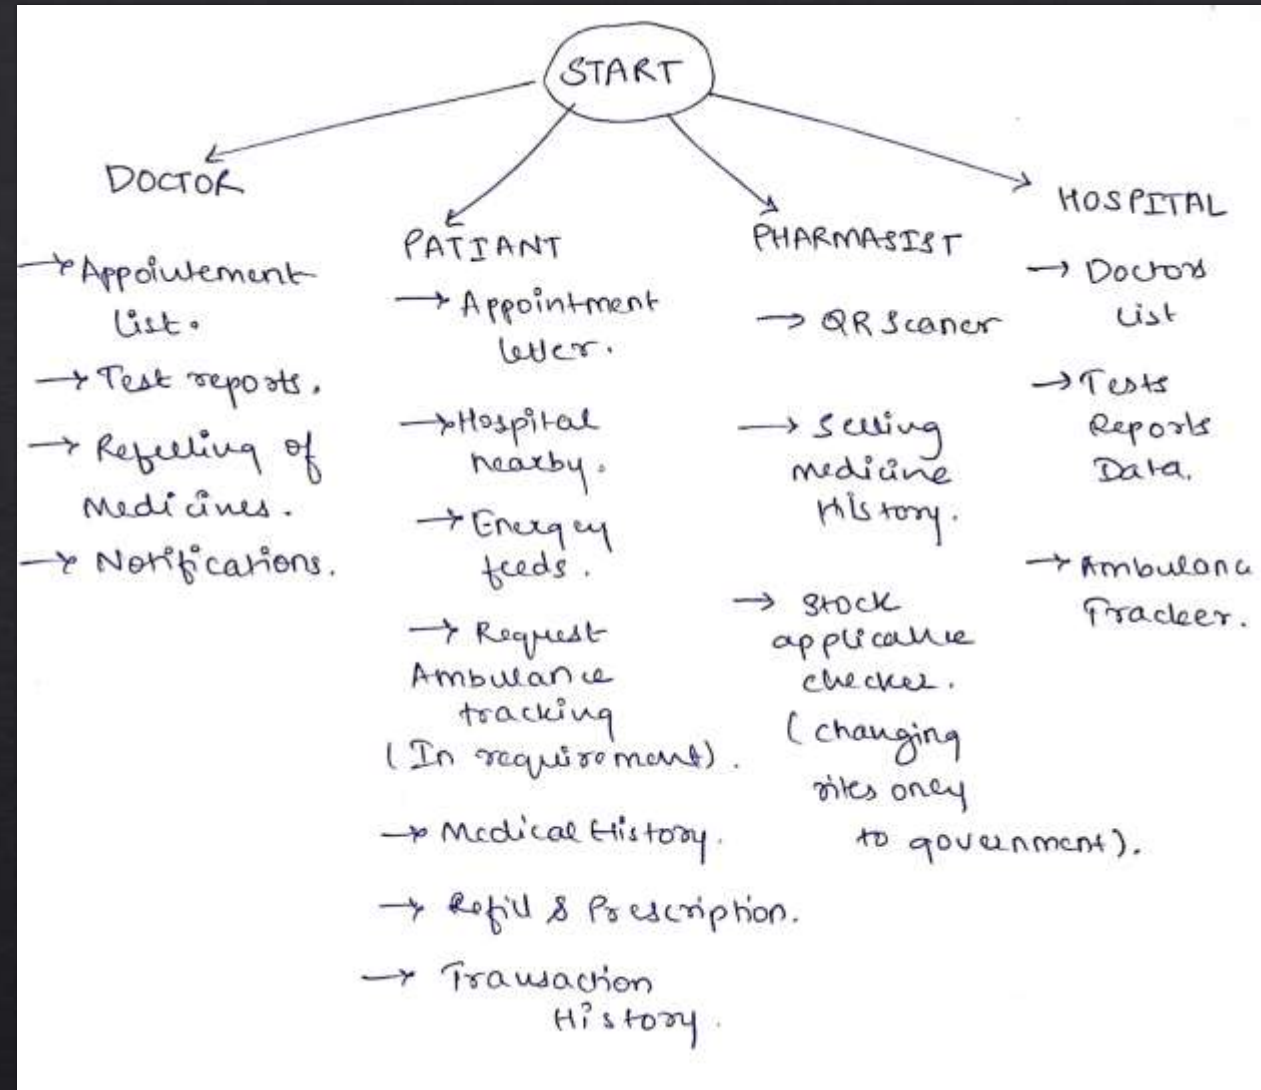 START
DOCTOR
→ Appointement
List.
→ Test reports.
→ Refelling of
Medicines.
→ Notifications.
PATIANT
→ Appointment
letter.
→ Hospital
nearby.
→ Energey
feeds.
→ Request
Ambulance
tracking
(In requirement).
→ Medical History.
→ Refill & Prescription.
→ Transaction
History.
PHARMASIST
→ QR Scaner
→ Selling
medicine
History.
→ Stock
applicable
checker.
(changing
rites only
to government).
HOSPITAL
→ Doctors
List
→ Tests
Reports
Data.
→ Ambulanc
Tracker.